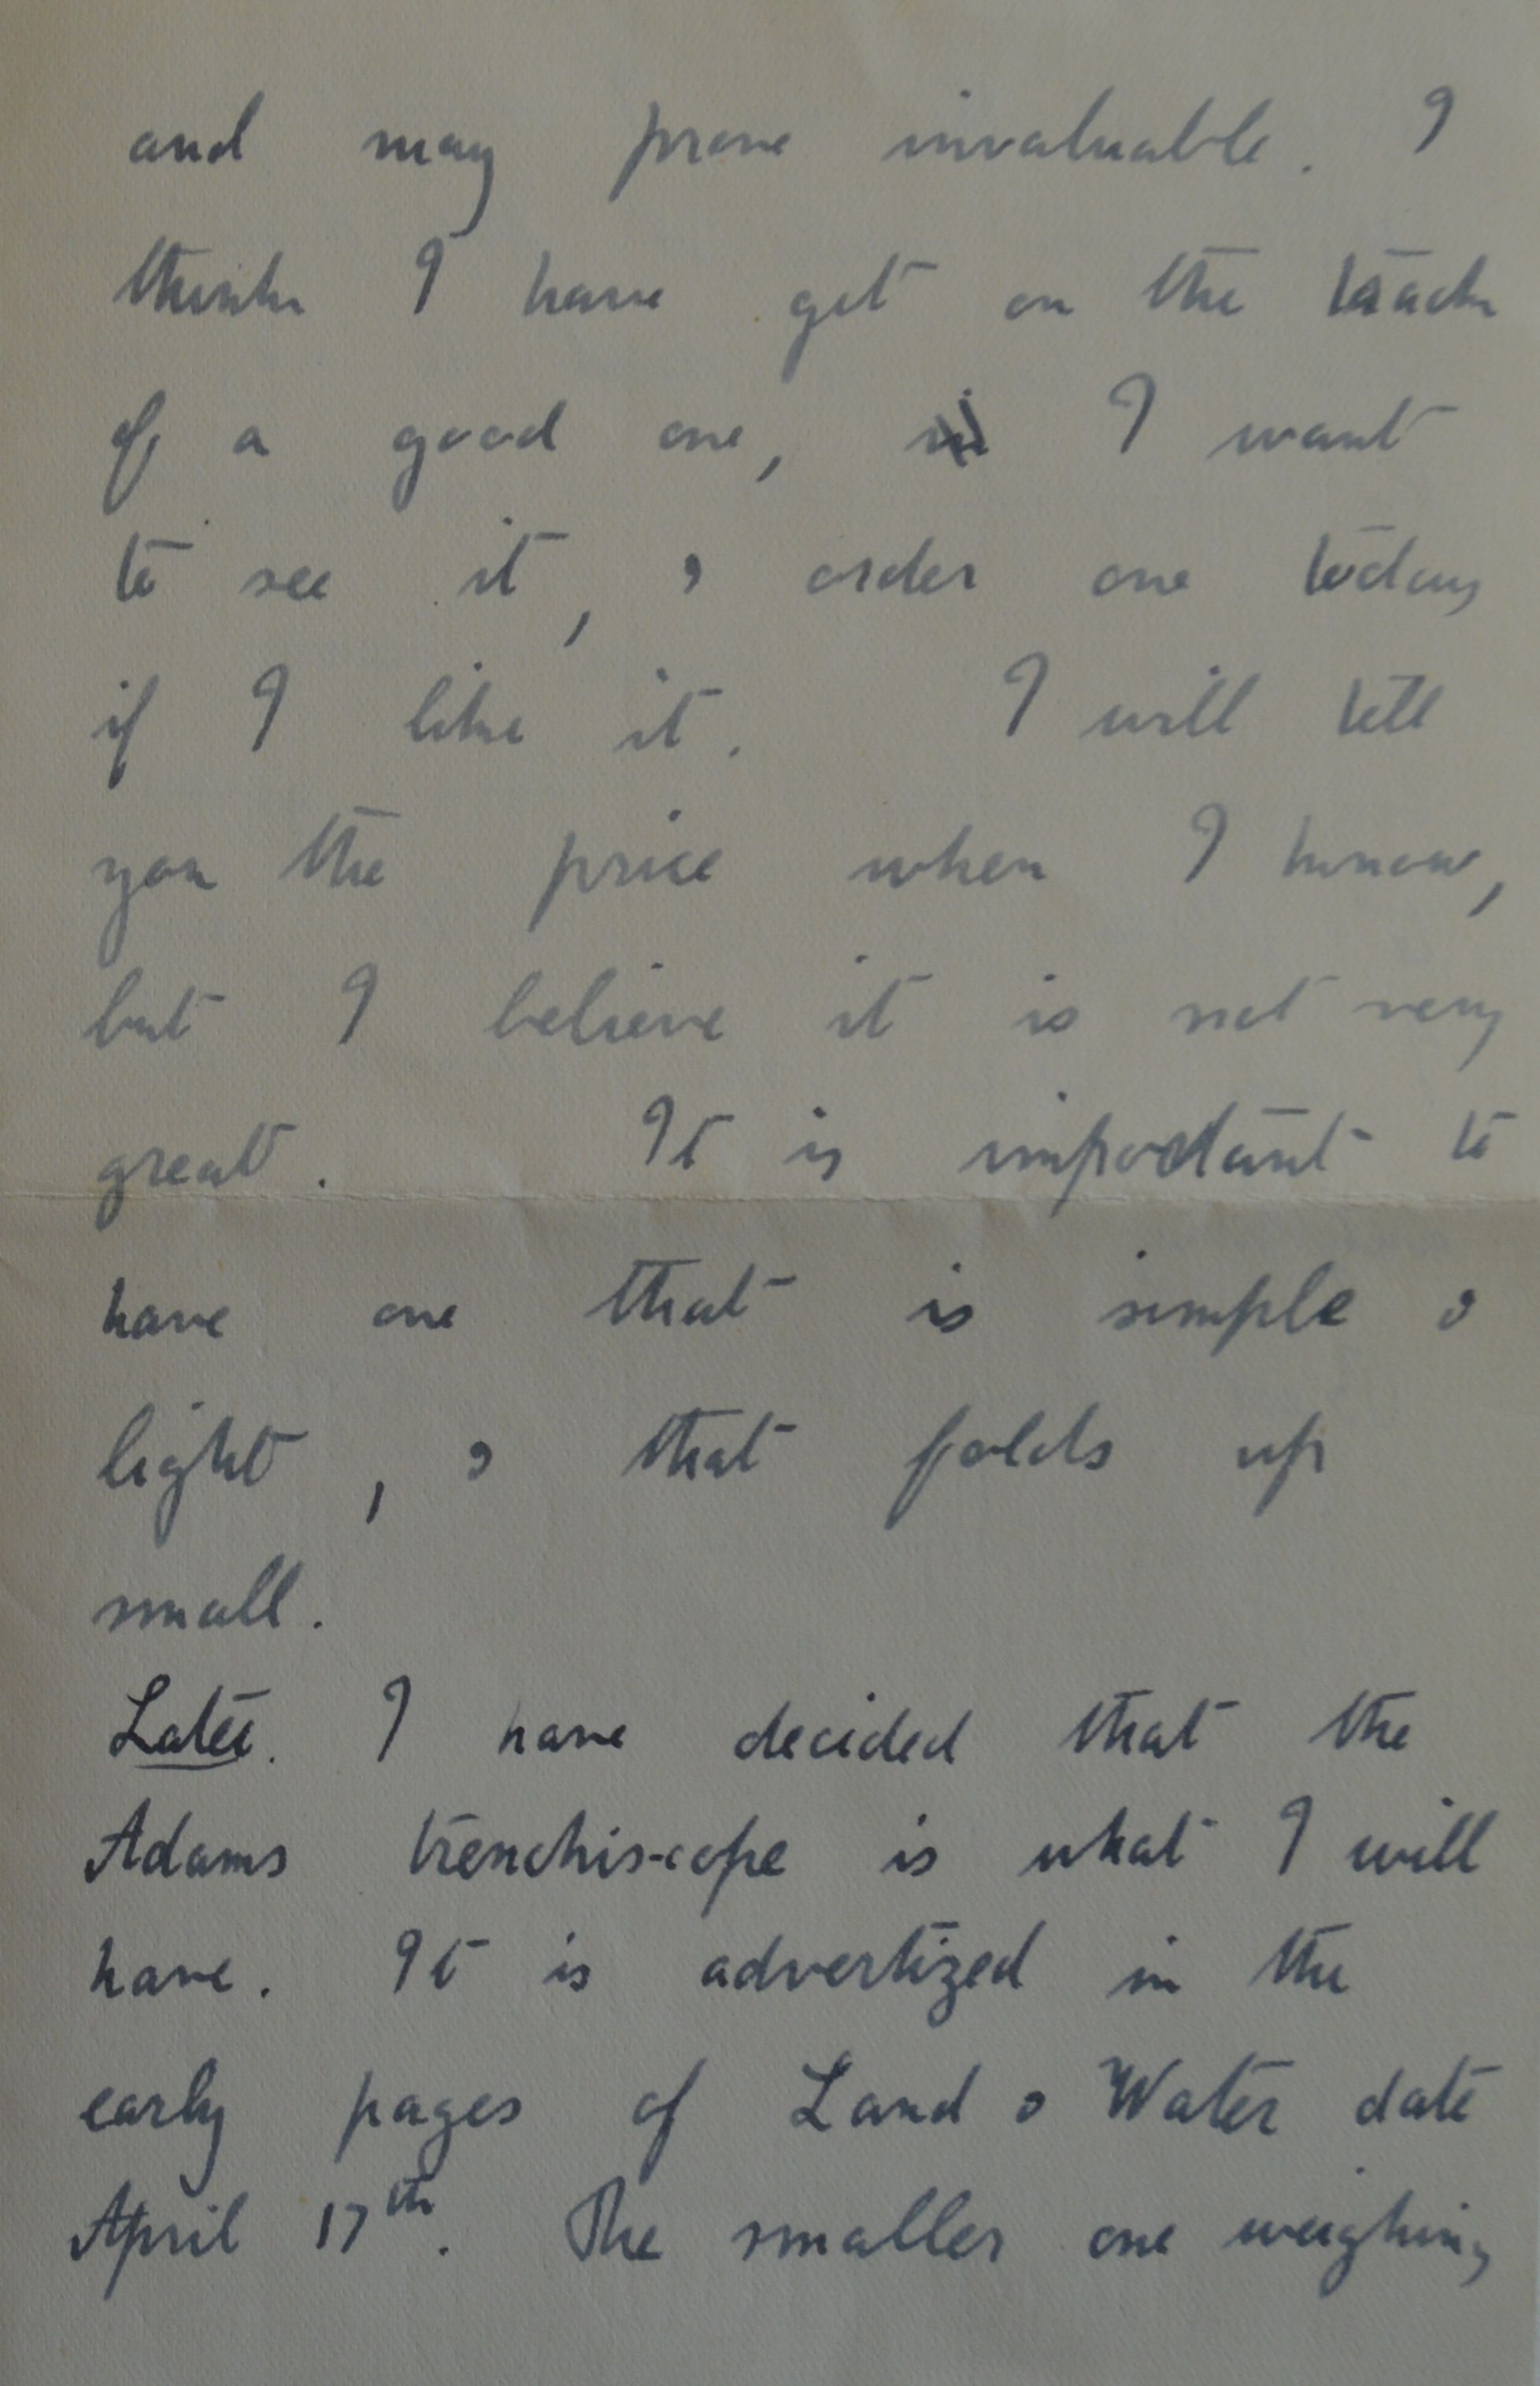 and may prove invaluable. I
think I have got on the track
of a good one, I want
to see it, & order one today
if I like it. I will tell
you the price when I know,
but I believe it is not very
great. It is important to
have one that is simple &
light, & that folds up
small.
Later. I have decided that the
Adams trenchis-cope is what I will
have. It is advertized in the
early pages of Land & Water date
April 17th. The smaller one weighing